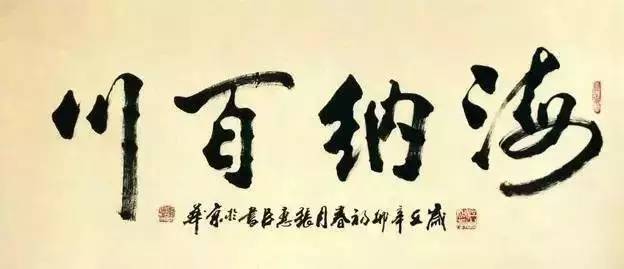 海納百川
歲在辛卯初春月張惠臣書於京華